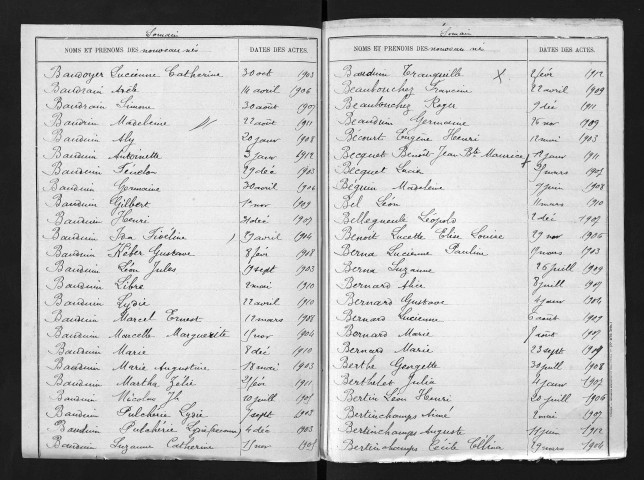 Somain
NOMS ET PRÉNOMS DES nouveau nés DATES DES ACTES.
Baudoyer Lucienne Catherine 30 oct 1903
Baudrain 14 avril 1906
Baudrain Simone 30 août 1907
Baudrin Madeleine 22 août 1911
Bauduin Aly 20 janv 1908
Bauduin Antoinette 3 janv 1912
Bauduin Fénelon 29 déc 1903
Bauduin Germaine 30 avril 1906
Bauduin Gilbert 1er nov 1909
Bauduin Henri 31 déc 1907
Bauduin Ida 29 avril 1904
Bauduin Kéber Gustave 8 fév 1908
Bauduin Léon Jules 19 sept 1903
Bauduin Libre 2 mai 1910
Bauduin Lydie 22 avril 1910
Bauduin Marcel Ernest 12 mars 1908
Bauduin Marcelle Marguerite nov 1904
Bauduin Marie 8 déc 1910
Bauduin Marie Augustine 18 mai 1903
Bauduin Martha Zélie 21 fév 1911
Bauduin Nicolas 10 juill 1901
Bauduin Pulchérie Lydie 7 sept 1903
Bauduin Pulchérie Lydie 4 déc 1903
Bauduin Suzanne Catherine nov 1901
Somain
NOMS ET PRÉNOMS DES nouveau né DATES DES ACTES.
Bauduin Tranquille X 2 fév 1912
Beaubouchez Francine 22 avril 1909
Beaubouchez Roger 9 déc 1911
Beauduin Germaine 26 nov 1909
Bécourt Eugène Henri 12 mai 1903
Becquet Benoît Jean Bte Maurice 12 janv 1911
Becquet Lucie mars 1903
Béguin Madeleine 7 juin 1908
Bel Léon 11 mars 1910
Bellegueule Léopold 2 déc 1907
Benoit Lucette Elise Louise 29 nov 1906
Berna Lucienne Pauline mars 1903
Berna Suzanne 26 juill 1909
Bernard Alice 8 juill 1907
Bernard Gustave 4 janv 1904
Bernard Lucienne 6 août 1907
Bernard Marie 7 août 1907
Bernard Marie 23 sept 1909
Berthe Georgette 30 juill 1908
Berthelet Julia 4 janv 1907
Bertin Léon Henri 20 juill 1906
Bertinchamps Aimé 2 mai 1907
Bertinchamps Auguste 11 juin 1912
Bertinchamps Cécile 29 mars 1904